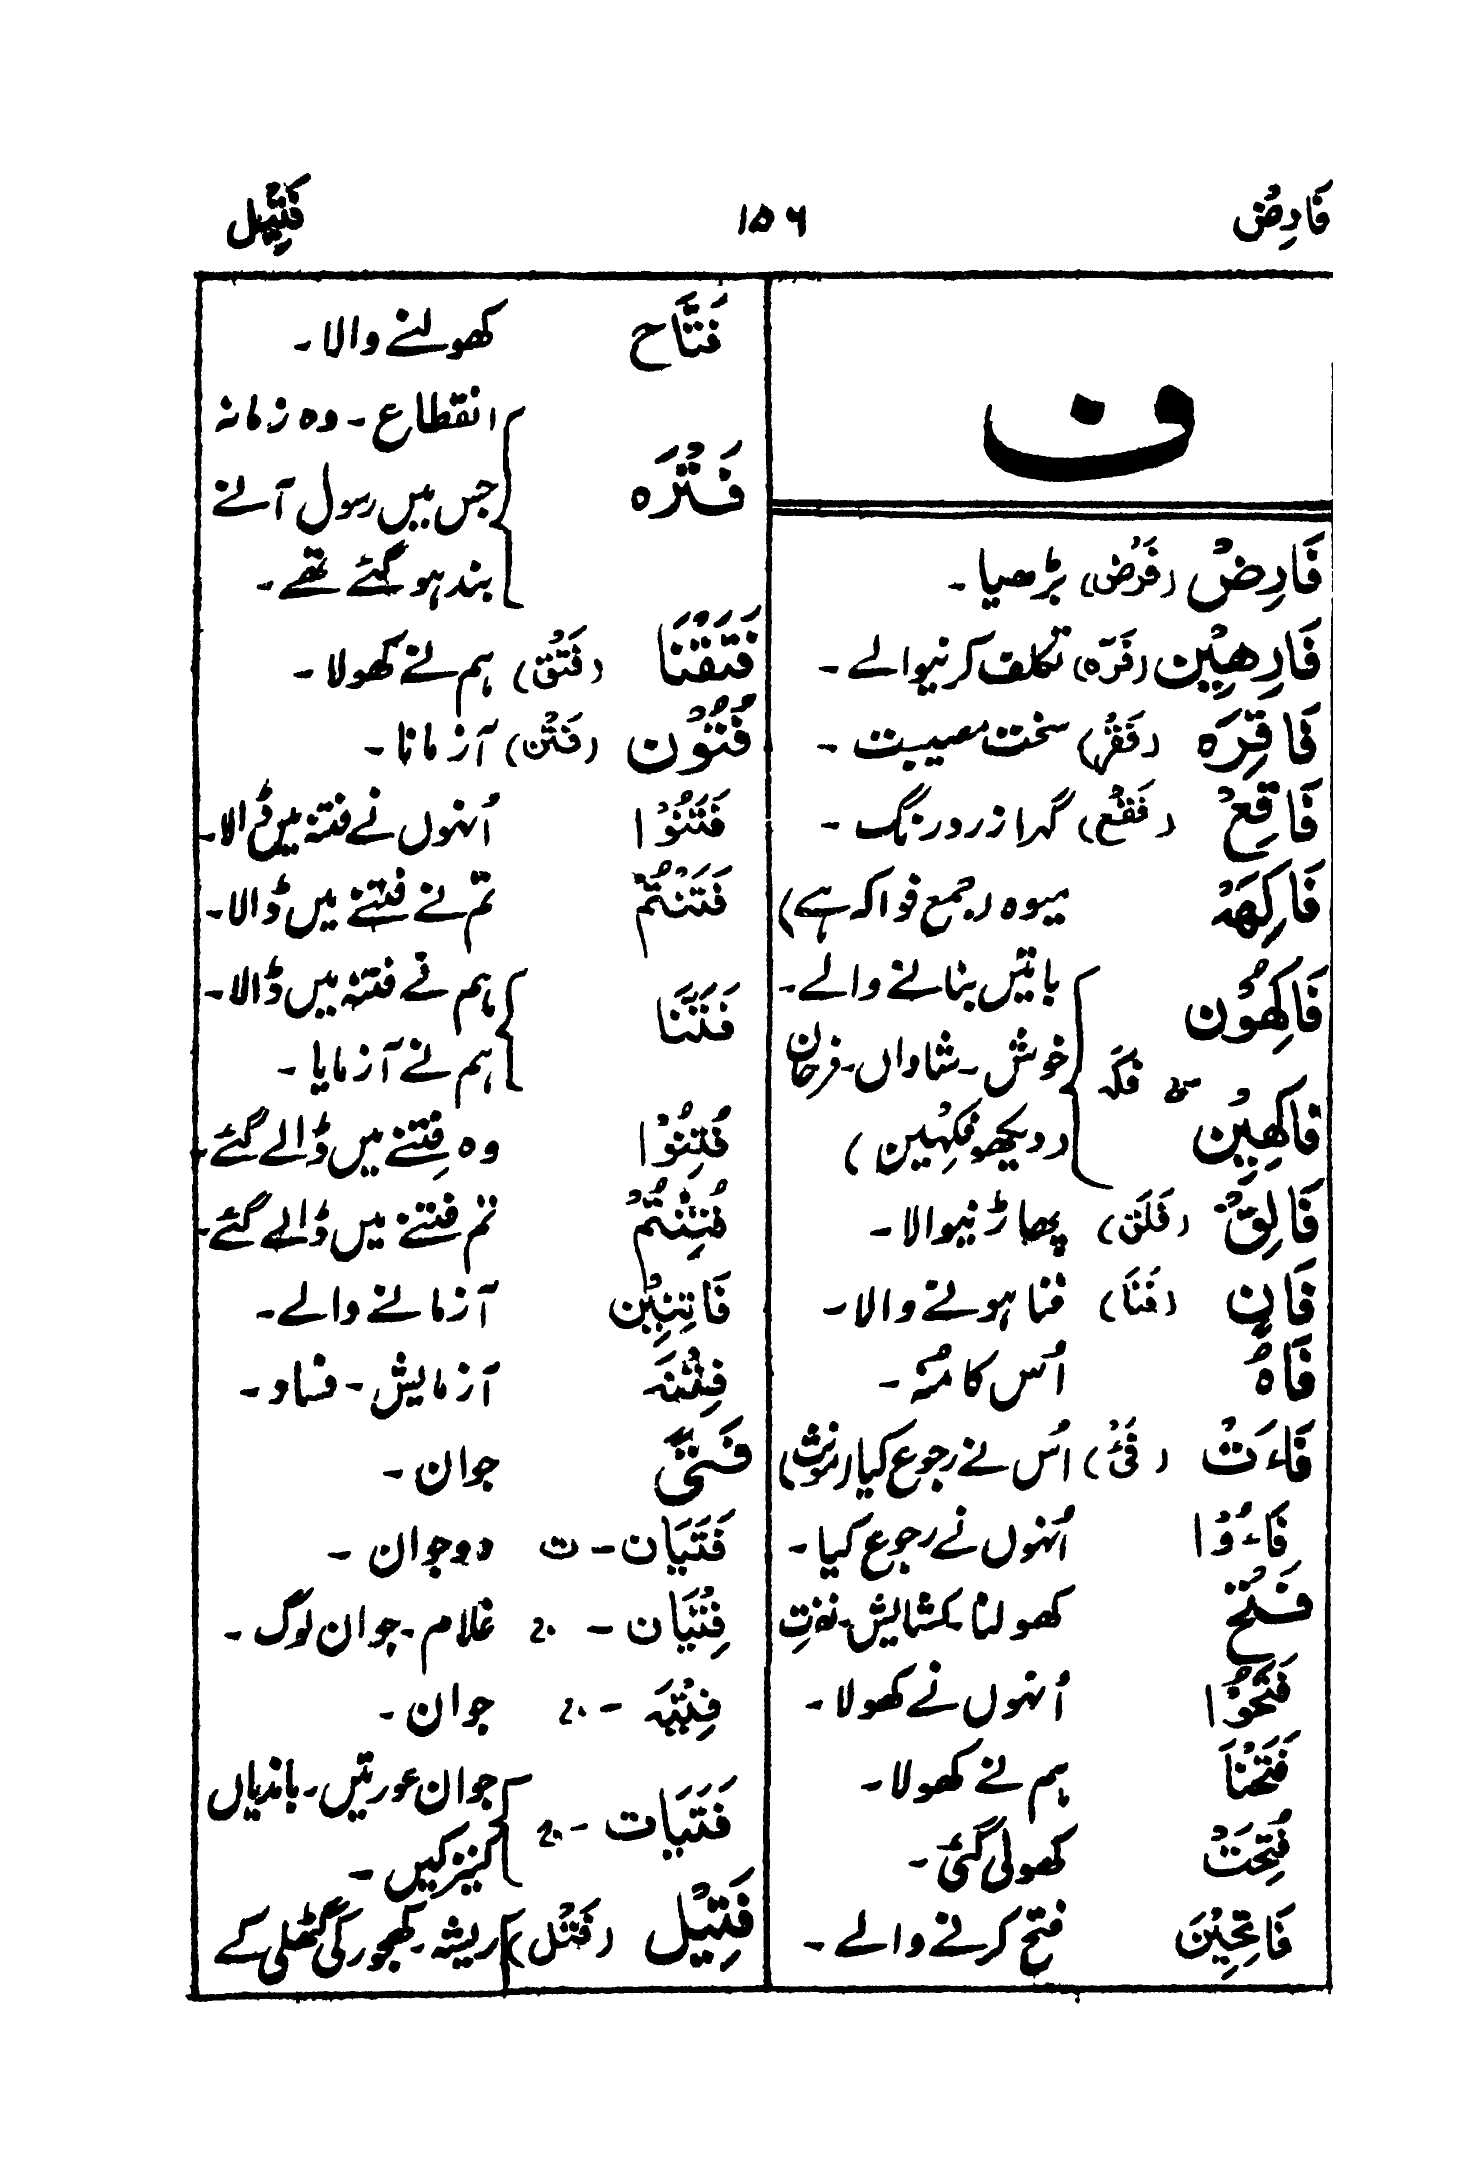 فَارِضٌ ۱۵۶ فَتِيْل
ف
فَارِضٌ (فَرْض) بڑھیا۔
فَارِهِيْن (فَرَه) تکلف کرنیوالے۔
فَاقِرَه (فَقْر) سخت مصیبت۔
فَاقِعٌ (فَقْع) گہرا زرد رنگ۔
فَاكِهَةٌ میوہ (جمع فواکہ ہے)
فَاكِهُوْن باتیں بنانے والے۔
فَكَه خوش۔ شاداں۔ فرحاں
فَاكِهِيْن (دیکھو فکہین)
فَالِقٌ (فَلَق) پھاڑنیوالا۔
فَانٍ (فَنَا) فنا ہونے والا۔
فَاهُ اُس کا منہ۔
فَاءَتْ (فَیْئ) اُس نے رجوع کیا (مونث)
فَاءُوْا اُنہوں نے رجوع کیا۔
فَتْحٌ کھولنا۔ کشایش۔
فَتَحُوْا اُنہوں نے کھولا۔
فَتَحْنَا ہم نے کھولا۔
فُتِحَتْ کھولی گئی۔
فَاتِحِيْنَ فتح کرنے والے۔
فَتَّاح کھولنے والا۔
انقطاع۔ وہ زمانہ
فَتْرَه جس میں رسول آنے
بند ہوگئے تھے۔
فَتَقْنَا (فَتْق) ہم نے کھولا۔
فُتُوْن (فَتْن) آزمانا۔
فَتَنُوْا اُنہوں نے فتنہ میں ڈالا۔
فَتَنْتُمْ تم نے فتنے میں ڈالا۔
فَتَنَّا ہم نے فتنہ میں ڈالا۔
ہم نے آزمایا۔
فُتِنُوْا وہ فتنے میں ڈالے گئے۔
فُتِنْتُمْ تم فتنے میں ڈالے گئے۔
فَاتِنِيْن آزمانے والے۔
فِتْنَه آزمایش۔ فساد۔
فَتًى جوان۔
فَتَيَان۔ ت دو جوان۔
فِتْيَان۔ ج غلام۔ جوان لوگ۔
فِتْيَه۔ ج جوان۔
فَتَيَات۔ ج جوان عورتیں۔ باندیاں
کنیزکیں۔
فَتِيْل (فَتْل) ریشہ۔ کھجور کی گٹھلی کے